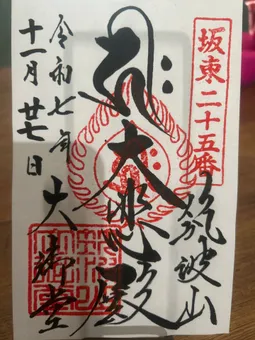 坂東二十五番
筑波山
大悲殿
大御堂
令和七年
十一月廿七日